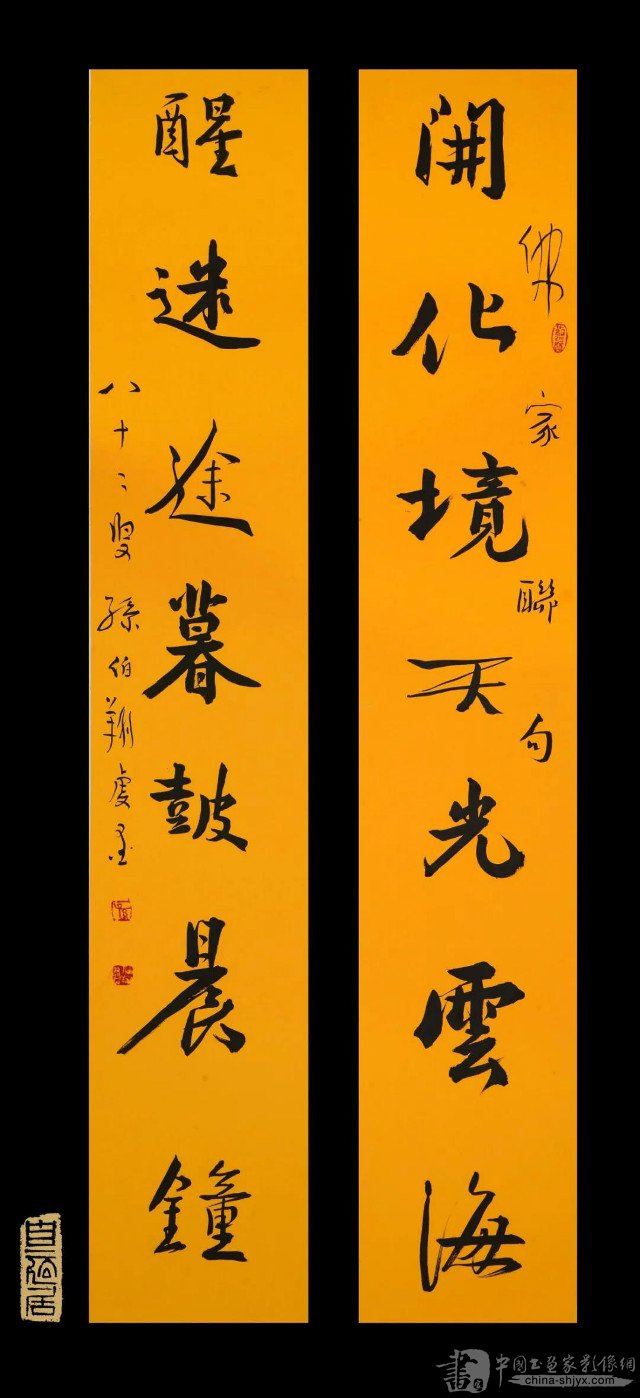 開化境天光雲海
佛家聯句
醒迷途暮鼓晨鐘
八十二叟孫伯翔虔墨
中國書畫家影像網
china-shjyx.com